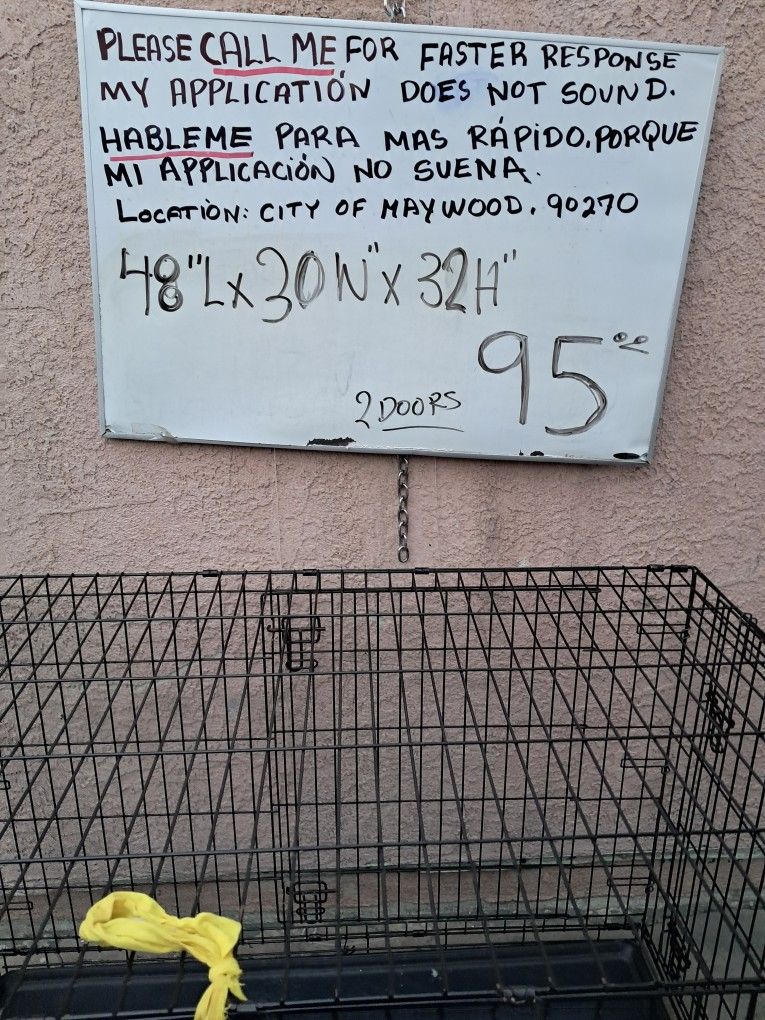 PLEASE CALL ME FOR FASTER RESPONSE
MY APPLICATIÓN DOES NOT SOUND.
HABLEME PARA MAS RÁPIDO. PORQUE
MI APPLICACIÓN NO SUENA.
LOCATION: CITY OF MAYWOOD. 90270
48"L x 30W" x 32H"
95.00
2 DOORS